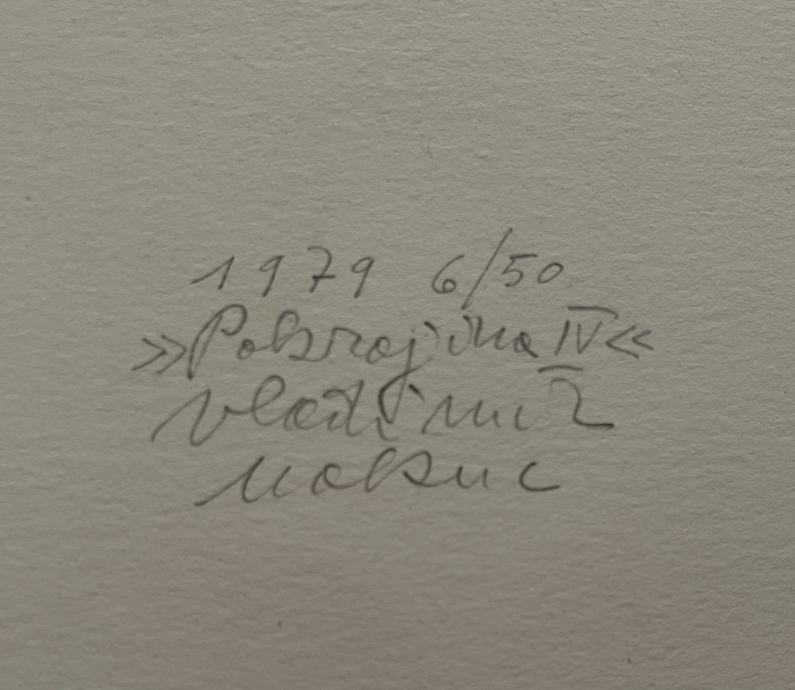 1979 6/50
»Pokrajina IV«
vladimir
makuc